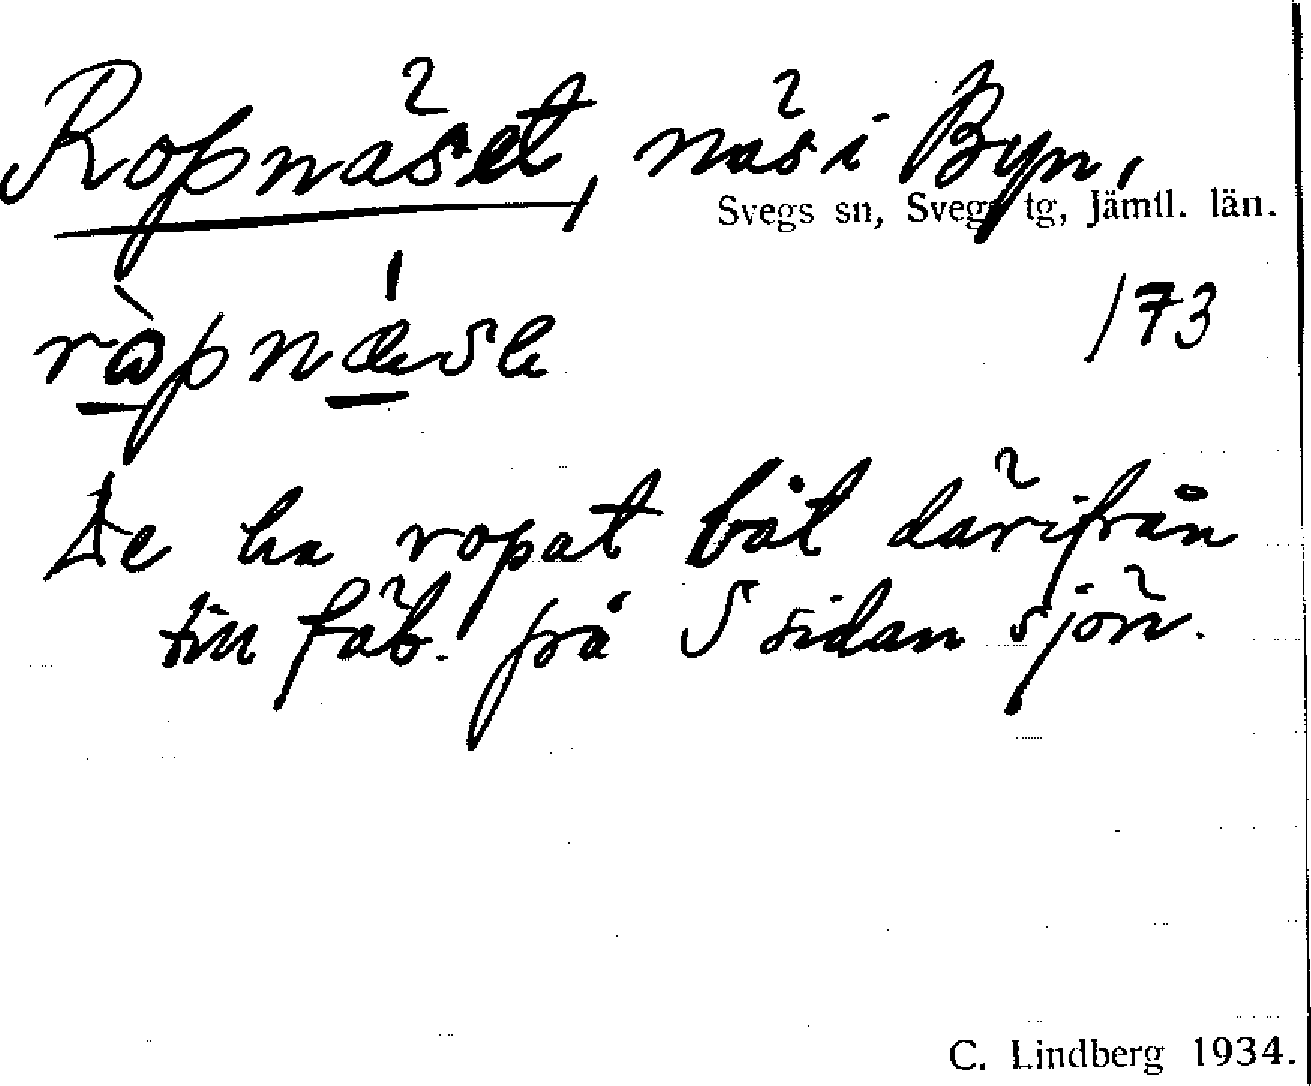 Ropnäset, näs i Byn,
Svegs sn, Svegs tg, Jämtl. län.
173
De ha ropat båt därifrån
till fäb. på S sidan sjön.
C. Lindberg 1934.